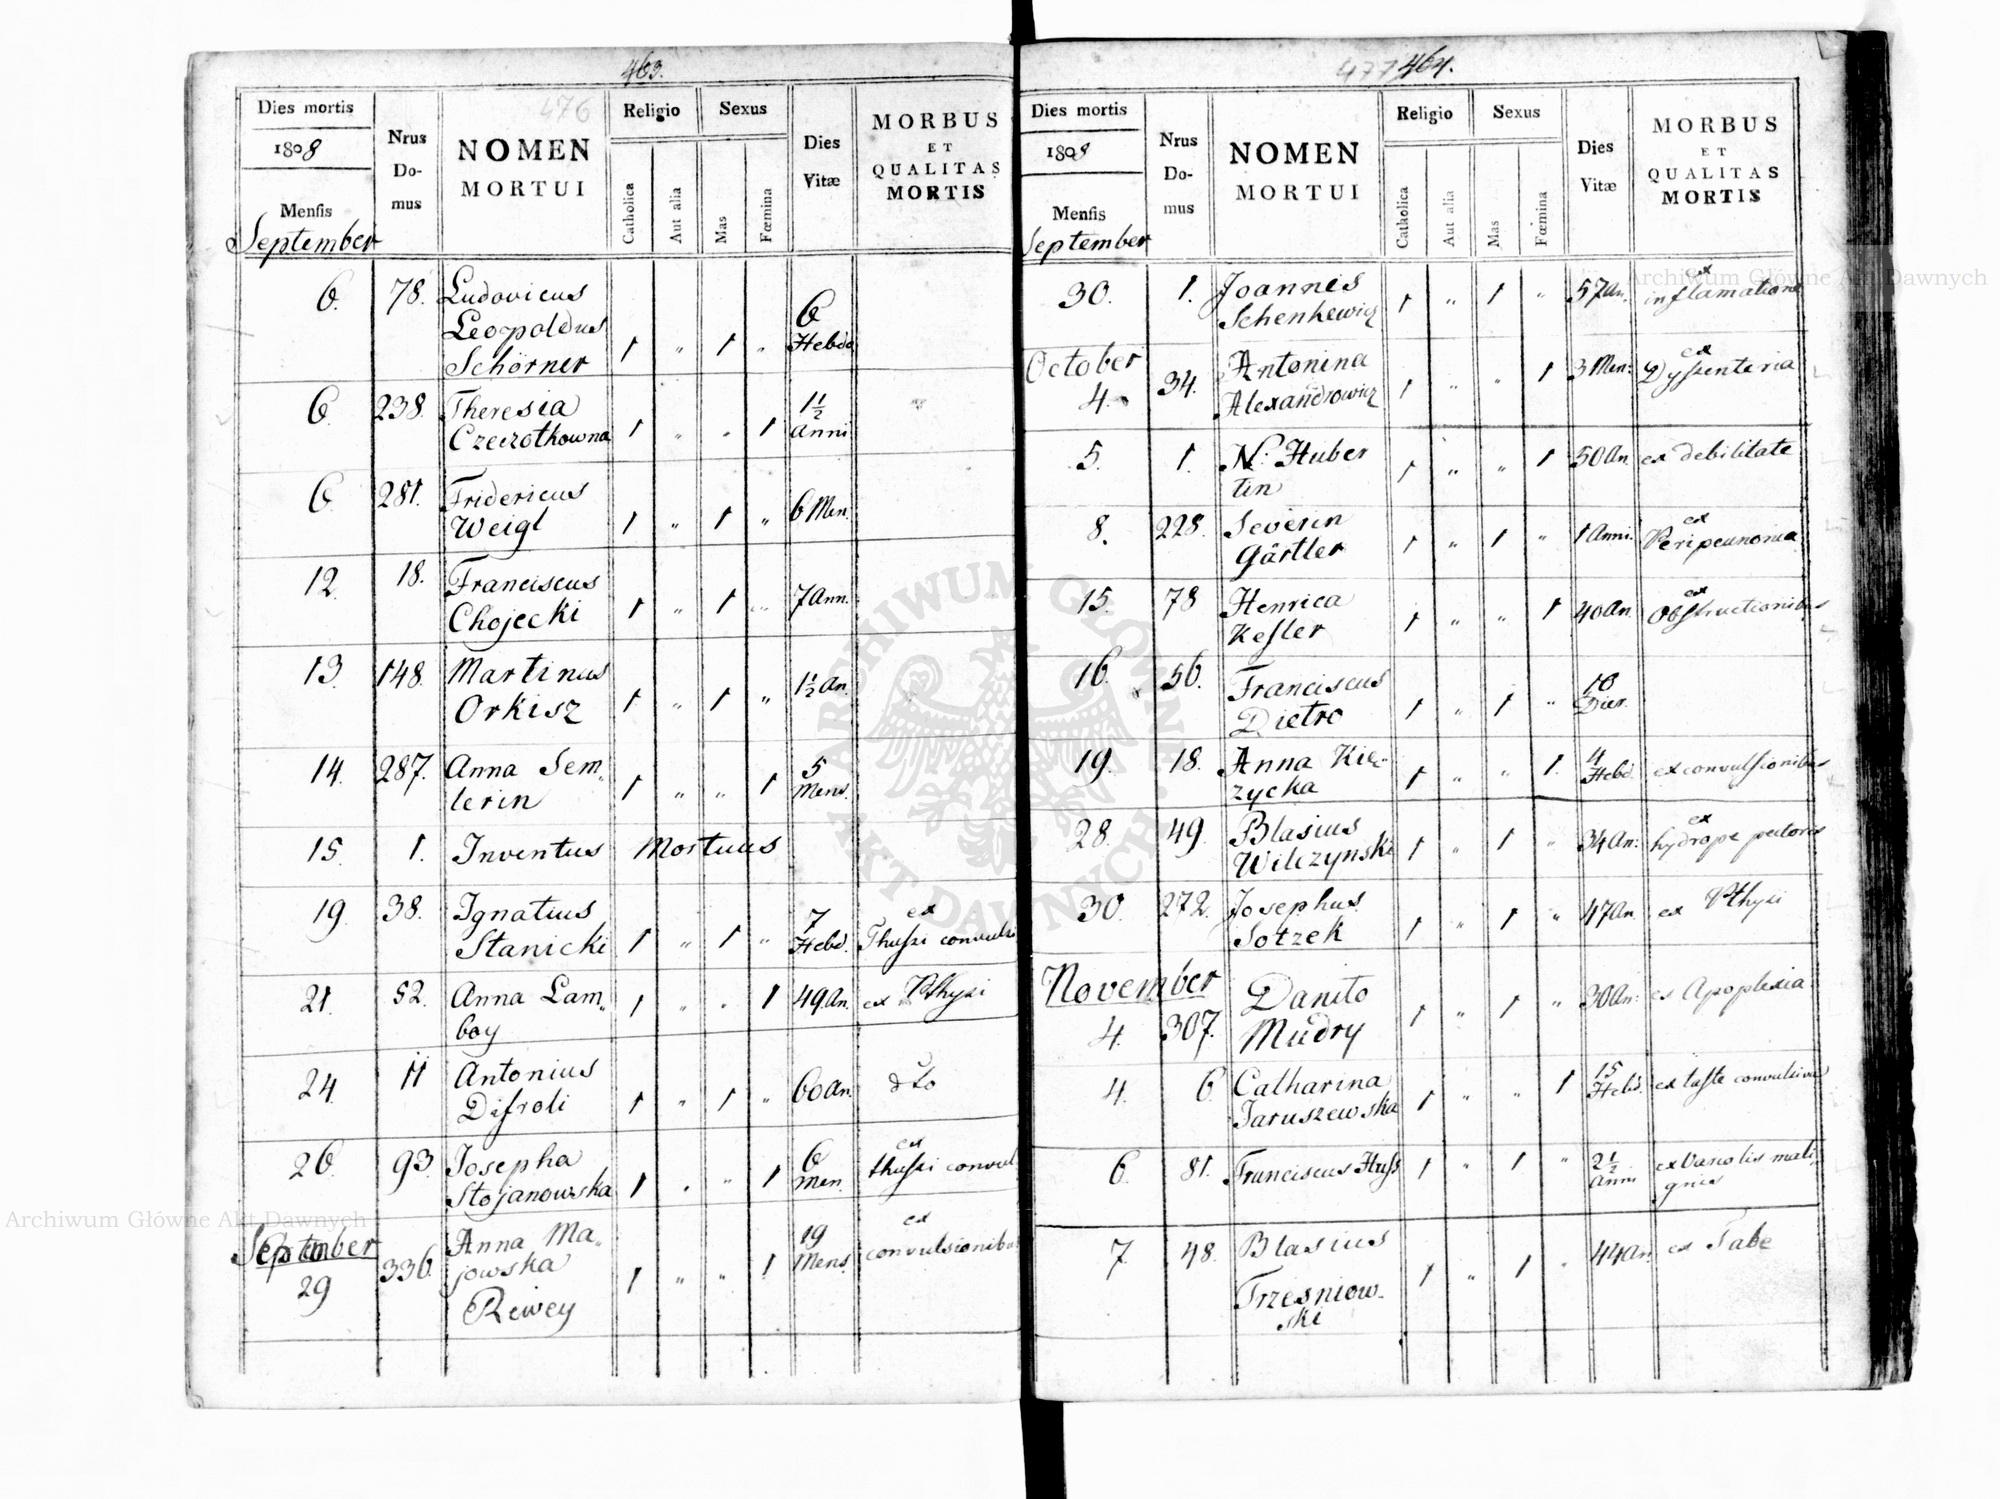 463.
476
Dies mortis
1808
Mensis
September
Nrus
Do-
mus
NOMEN
MORTUI
Religio
Catholica
Aut alia
Sexus
Mas
Fœmina
Dies
Vitæ
MORBUS
ET
QUALITAS
MORTIS
6. 78. Ludovicus
Leopoldus
Schörner 1 „ 1 „ 6 Hebdo
6 238. Theresia
Czeczotkowna 1 „ „ 1 1½ Anni
6 281. Fridericus
Weigl 1 „ 1 „ 6 Men.
12. 18. Franciscus
Chojecki 1 „ 1 „ 7 Ann.
13. 148. Martinus
Orkisz 1 „ 1 „ 1½ An.
14. 287. Anna Sem„
lerin 1 „ „ 1 5 Mens.
15. 1. Inventus Mortuus
19. 38. Ignatius
Stanicki 1 „ 1 „ 7 Hebd. ex
Thussi convulsi
21. 52. Anna Lam„
boy 1 „ „ 1 49 An. ex Pthysi
24. 11 Antonius
Disroli 1 „ 1 „ 60 An. dto
26. 93. Josepha
Stojanowska 1 „ „ 1 6 Men. ex
thussi convul
September
29 336. Anna Ma„
jowska
Rewey 1 „ „ 1 19 Mens. ex
convulsionibu
477 464.
Dies mortis
1808
Mensis
September
Nrus
Do-
mus
NOMEN
MORTUI
Religio
Catholica
Aut alia
Sexus
Mas
Fœmina
Dies
Vitæ
MORBUS
ET
QUALITAS
MORTIS
30. 1. Joannes
Schenkewicz 1 „ 1 „ 57 An. ex
inflamatione
October
4. 34. Antonina
Alexandrowicz 1 „ „ 1 3 Men: ex
Dyssenteria
5. 1. N: Huber
tin 1 „ „ 1 50 An. ex debilitate
8. 228. Severin
Gärtler 1 „ 1 „ 1 Anni. ex
Peripeunonia
15. 78 Henrica
Kesler 1 „ „ 1 40 An ex
Obstructionibus
16. 56. Franciscus
Dietro 1 „ 1 „ 10 Dier.
19. 18. Anna Kie„
zycka 1 „ „ 1. 4 Hebd. ex convulsionibus
28. 49. Blasius
Wilczynski 1 „ 1 „ 34 An: ex
hydrope pectoris
30. 272. Josephus
Sotzek 1 „ 1 „ 47 An. ex Pthysi
November
4. 307. Danito
Mudry 1 „ 1 „ 30 An: ex Apoplexia
4. 6 Catharina
Jaruszewska 1 „ „ 1 15 Hebd. ex tusse convulsiva
6. 81. Franciscus Huss 1 „ 1 „ 2½ Anni ex Variolis mali„
gnis
7. 48. Blasius
Trzesniow-
ski 1 „ 1 „ 44 An. ex Tabe
ARCHIWUM GŁÓWNE AKT DAWNYCH
Archiwum Główne Akt Dawnych
Archiwum Główne Akt Dawnych